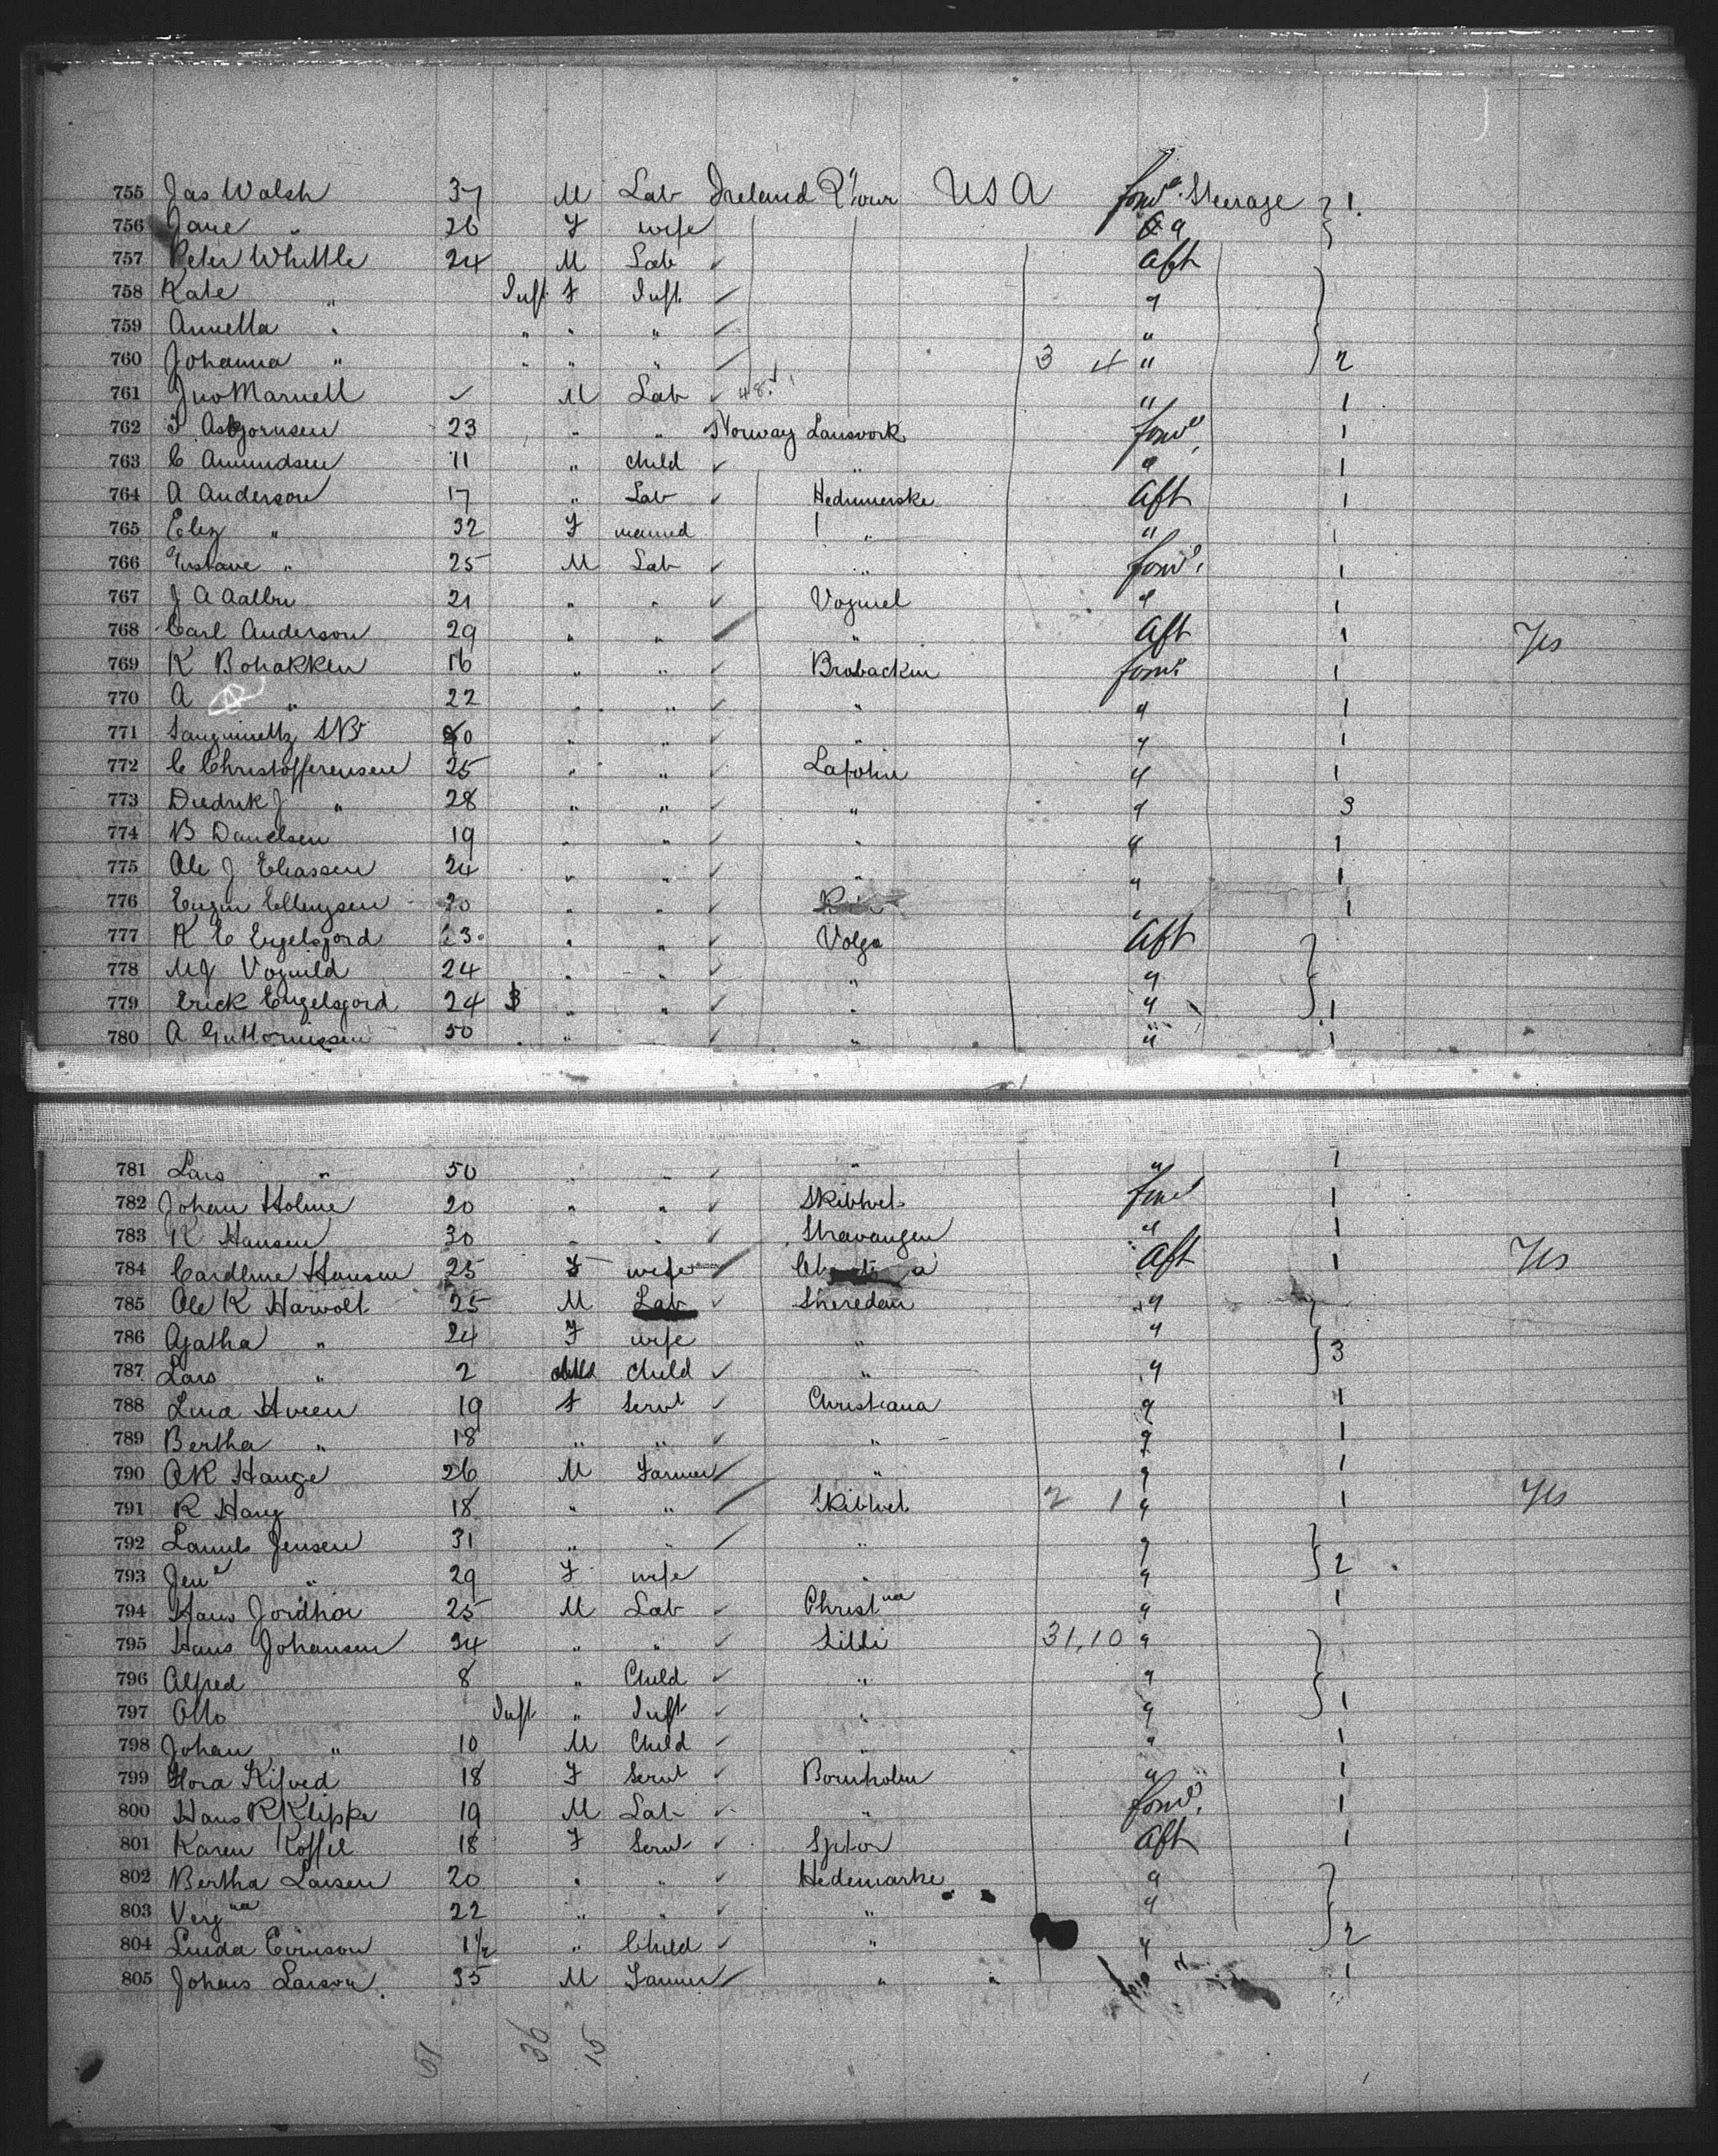 755 Jas Walsh 37 M Lab Ireland USA forwd Steerage 1
756 Jane " 26 F wife "
757 Peter Whittle 24 M Lab Aft
758 Kate " Inft F Inft "
759 Annetta " " " " "
760 Johanna " " " " 3 4 " 2
761 Jno Marnell M Lab 48 " 1
762 Asbjornsen 23 " " Norway forwd 1
763 C Amundsen 11 " child " " 1
764 A Anderson 17 " Lab Aft 1
765 Eliz " 32 F married " " 1
766 Gustave " 25 M Lab " forwd 1
767 J A Aalbu 21 " " " 1
768 Carl Anderson 29 " " " Aft 1 Yes
769 K Bohakken 16 " " Brobackin forwd 1
770 A " 22 " " " " 1
771 " " " " 1
772 C Christofferensen 25 " " " 1
773 Diedrik J " 28 " " " " 3
774 B Danielsen 19 " " " " 1
775 Ole J Eliassen 24 " " " " 1
776 20 " " " 1
777 K E 23 " " Volga Aft
778 24 " " " "
779 Erick Engelsgord 24 3 " " " " 1
780 A Guttormissen 50 " " " " 1
781 Lars " 50 " " " " 1
782 Johan Holme 20 " " Skibtvet forwd 1
783 K Hansen 30 " " Stravangen " 1
784 Cardline Hansen 25 F wife Aft 1 Yes
785 Ole K Harvolt 25 M Lab Sheredan "
786 Agatha " 24 F wife " " 3
787 Lars " 2 child child " "
788 Lina Hveen 19 F Servt Christiana " 1
789 Bertha " 18 " " " " 1
790 AK Hauge 26 M Farmer " " 1
791 R Haug 18 " " Skibtvet 2 1 " 1 Yes
792 Jensen 31 " " " "
793 " 29 F wife " " 2
794 Hans Jordhoi 25 M Lab Christna " 1
795 Hans Johansen 34 " " Lilli 31,10 "
796 Alfred 8 " Child " "
797 Otto Inft " Inft " " 1
798 Johan " 10 M Child " " 1
799 18 F Servt Bornholm " 1
800 Hans R Klippe 19 M Lab " forwd 1
801 Karen Koffel 18 F Servt Aft 1
802 Bertha Larsen 20 " " Hedemarke "
803 Vergna 22 " " " "
804 1½ " Child " " 2
805 Johans Larson 35 M Farmer " " 1
51 36 15